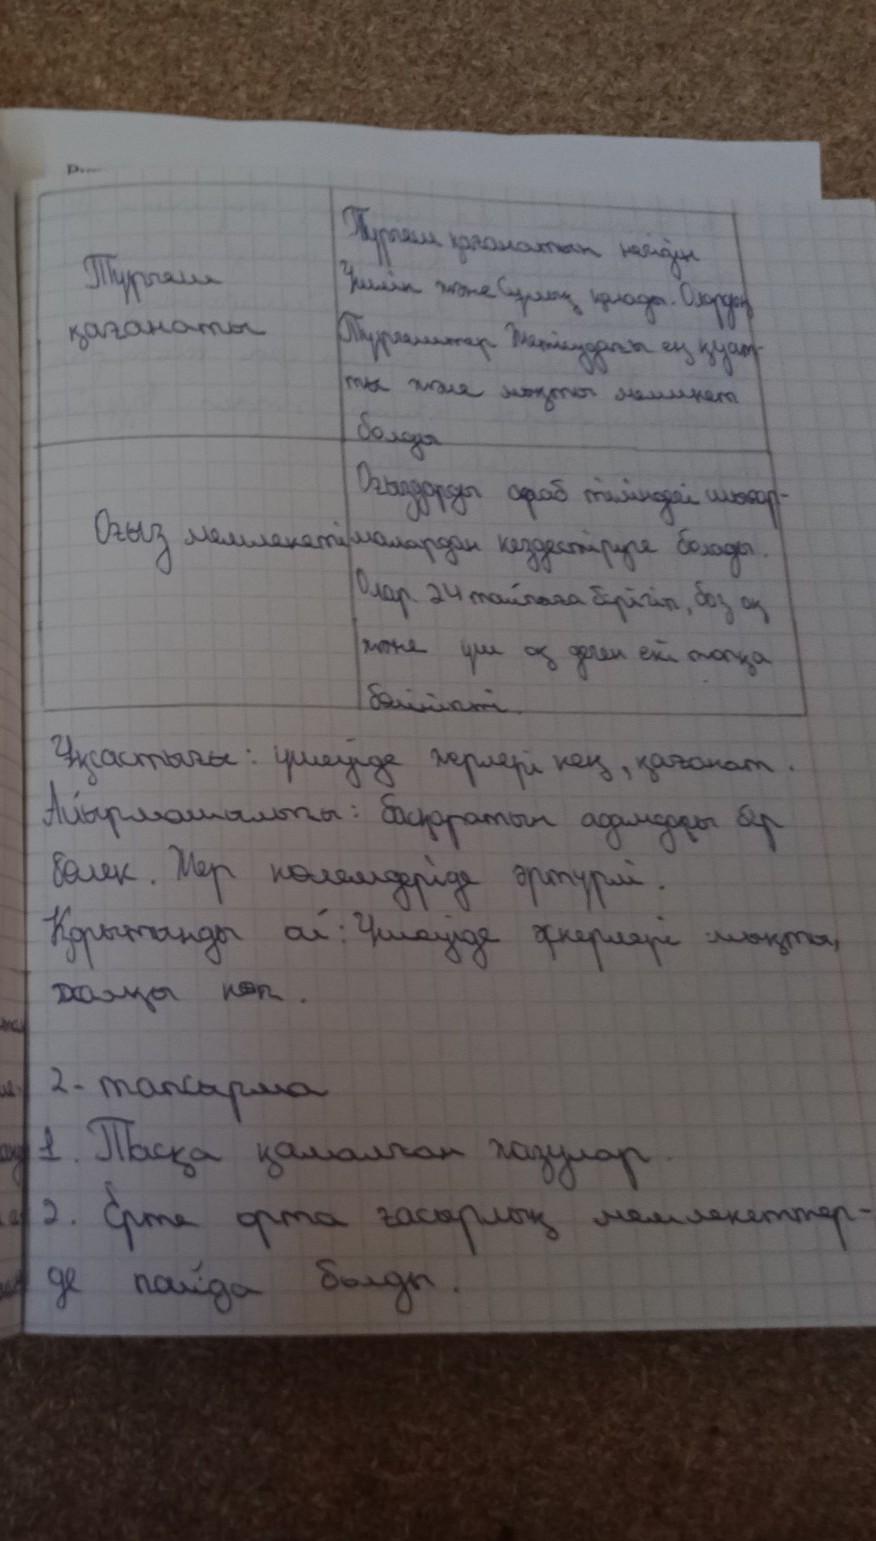 Түргеш
қағанаты
Түргеш қағанатын негізін
Үшлік және Сұлық қалады. Олардың
Түргештер Жетісудағы ең қуат-
ты және мықты мемлекет
болды
Оғыз мемлекеті
Оғыздарды араб тіліндегі шығар-
малардан кездестіруге болады.
Олар 24 тайпаға бірігіп, боз оқ
және үш оқ деген екі топқа
бөлінеті.
Ұқсастығы: үшеуіде жерлері кең, қағанат.
Айырмашылығы: басқаратын адамдары бір
бөлек. Жер көлемдеріде әртүрлі.
Қорытынды ой: Үшеуіде әскерлері мықты,
халқы көп.
2-тапсырма
1. Тасқа қашалған жазулар.
2. Ерте орта ғасырлық мемлекеттер-
де пайда болды.